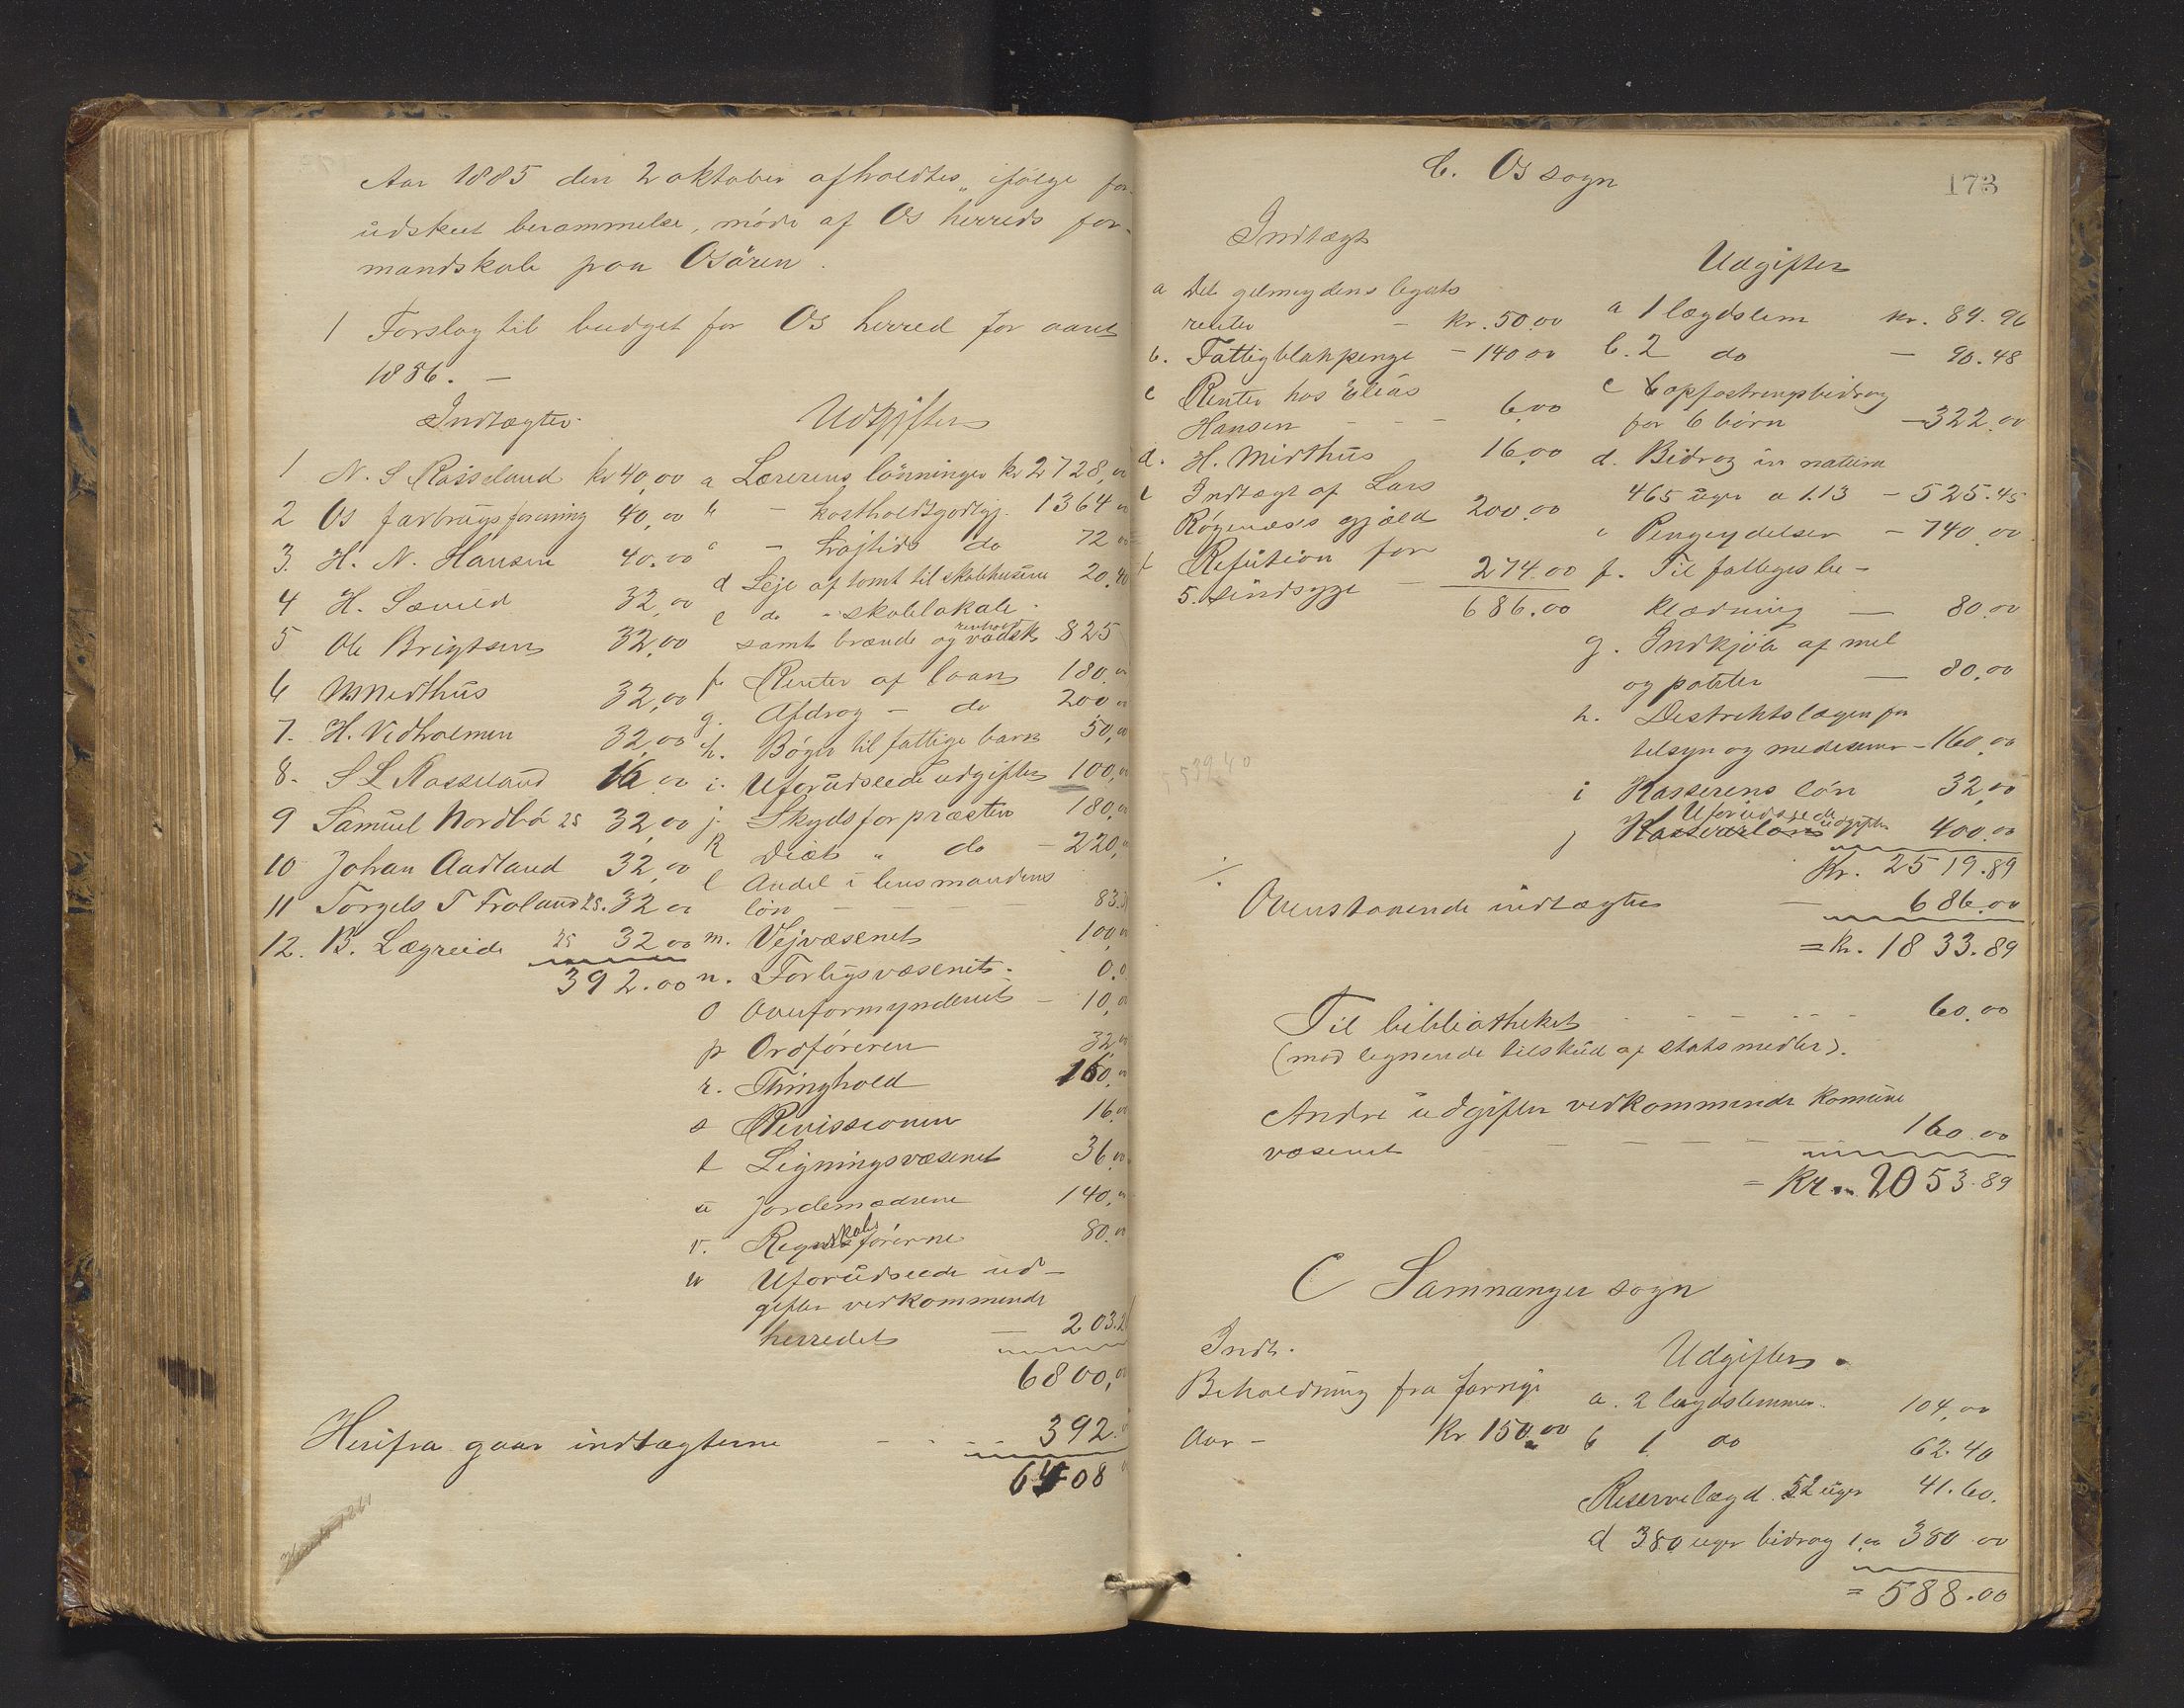 Aar 1885 den 2 oktober afholdtes, ifølge for-
udskeet berammelse, møde af Os herreds for-
mandskab paa Osøren.
1 Forslag til budget for Os herred for aaret
1886. —
Indtægter
1 N. S Røsseland kr 40,00
2 Os farbrugsforening 40,00
3. H. N. Hansen 40.00
4 H. Søvold 32,00
5 Ole Brigtsen 32,00
6 Midthus 32,00
7. H. Vidholmen 32,00
8. S L Røsseland 16,00
9 Samuel Nordbø 25 32,00
10 Johan Aadland 32,00
11 Torgels T Frøland 25. 32 00
12. B. Lægreide 25 32 00
392.00
Udgifter
a Lærerens lønninger kr 2728,00
b — kostholdsgodtgj. 1364 00
c — højtids do 72 00
d Leje af tomt til skolehusene 20,40
e do - skolelokale
samt brænde og renhold vadsk 825
f. Renter af laan 180.00
g. Afdrag — do 200 00
h. Bøger til fattige barn 50,00
i. Uforudseede udgifter 100,00
j. Skyds for præsten 180,00
k Diæt " do — 220,00
l Andel i lensmandens
løn — — — — 83.3
m. Vejvæsenet 100,00
n. Forligsvæsenet. 0.0
o Overformynderiet — 10,00
p Ordføreren 32 00
r. Thinghold 160,00
s Revissionen 16,00
t Ligningsvæsenet 36,00
u Jordemødrene 140,00
v. Regnskabsførerne 80.00
w Uforudseede ud-
gifter vedkommende
herredet — 203.2
6800,00
Herifra gaar indtægterne — — 392.0
6408
173
b. Os sogn
Indtægt
a Det gelmeydens legats
renter — kr. 50.00
b. Fattigblakpenge — 140.00
c Renter hos Elias
Hansen — — — 6,00
d. H. Midthus 16,00
e Indtægt af Lars
Røgenæses gjæld 200.00
f Refution for
5. sindsyge — 274.00
686.00
Udgifter
a 1 lægdslem kr. 89.96
b. 2 do — 90.48
c Copfostringsbidrag
for 6 børn — 322.00
d. Bidrag in natura
465 uger a 1.13 — 525.45
e Pengeydelser — 740.00
f. Til fattiges be-
klædning — 80.00
g. Indkjøb af mel
og poteter — 80,00
h. Distriktslægen for
tilsyn og medesiner — 160,00
i Kasserens løn 32,00
j Uforudseede udgifter 400.00
Kr. 2519.89
÷ Ovenstaaende indtægter — 686.00
= Kr. 1833.89
Til bibliotheket — — — — 60,00
(mod lignende tilskud af statsmidler).
Andre udgifter vedkommende komune
væsenet — — — — — 160.00
= Kr. 2053.89
C Samnanger sogn
Indt.
Beholdning fra forrige
Aar — Kr 150.00
Udgifter.
a. 2 lægdslemmer. 104,00
b 1. do 62.40
Reservelægd. 52 uger 41.60.
d 380 uger bidrag 1,00 380 00
= 588.00